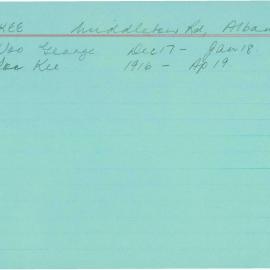 KEE Middleton Rd, Alban
Woo George Dec 17 - Jan 18
Kee 1916 - Ap 19